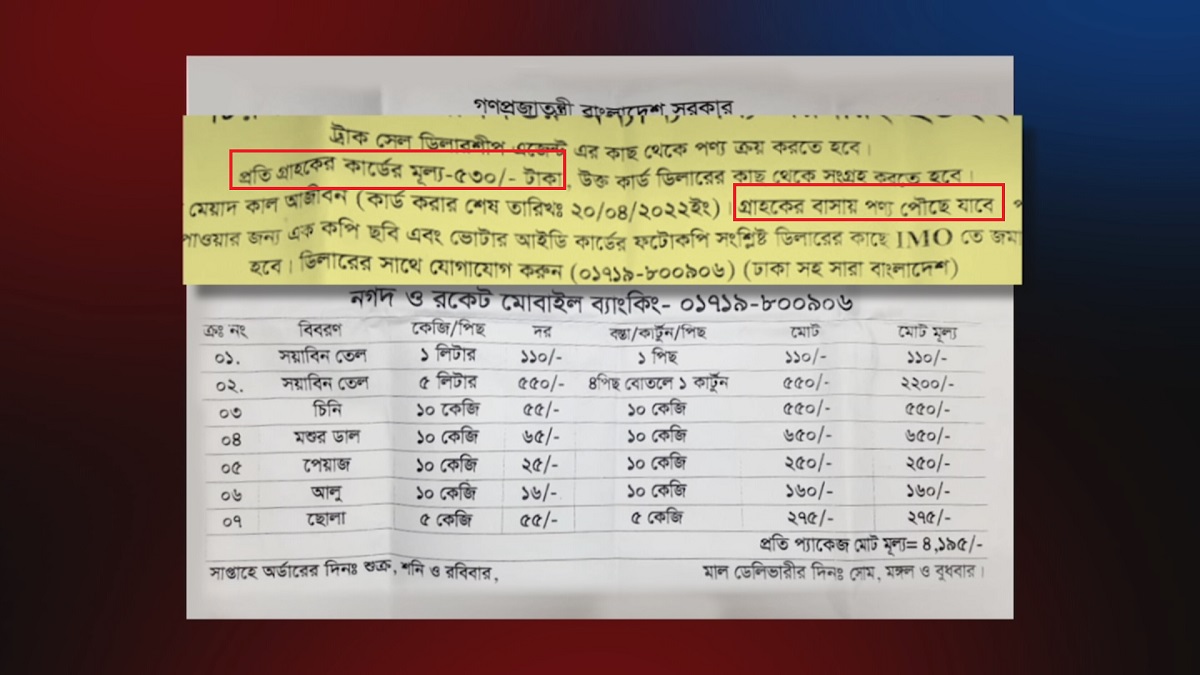 গণপ্রজাতন্ত্রী বাংলাদেশ সরকার
ট্রাক সেল ডিলারশীপ এজেন্ট এর কাছ থেকে পণ্য ক্রয় করতে হবে।
প্রতি গ্রাহকের কার্ডের মূল্য-৫৩০/- টাকা, উক্ত কার্ড ডিলারের কাছ থেকে সংগ্রহ করতে হবে।
মেয়াদ কাল আজীবন (কার্ড করার শেষ তারিখঃ ২০/০৪/২০২২ইং)। গ্রাহকের বাসায় পণ্য পৌছে যাবে
পাওয়ার জন্য এক কপি ছবি এবং ভোটার আইডি কার্ডের ফটোকপি সংশ্লিষ্ট ডিলারের কাছে IMO তে জমা
হবে। ডিলারের সাথে যোগাযোগ করুন (০১৭১৯-৮০০৯০৬) (ঢাকা সহ সারা বাংলাদেশ)
নগদ ও রকেট মোবাইল ব্যাংকিং- ০১৭১৯-৮০০৯০৬
ক্রঃ নং বিবরণ কেজি/পিছ দর বস্তা/কার্টুন/পিছ মোট মোট মূল্য
০১. সয়াবিন তেল ১ লিটার ১১০/- ১ পিছ ১১০/- ১১০/-
০২. সয়াবিন তেল ৫ লিটার ৫৫০/- ৪পিছ বোতলে ১ কার্টুন ৫৫০/- ২২০০/-
০৩ চিনি ১০ কেজি ৫৫/- ১০ কেজি ৫৫০/- ৫৫০/-
০৪ মশুর ডাল ১০ কেজি ৬৫/- ১০ কেজি ৬৫০/- ৬৫০/-
০৫ পেয়াজ ১০ কেজি ২৫/- ১০ কেজি ২৫০/- ২৫০/-
০৬ আলু ১০ কেজি ১৬/- ১০ কেজি ১৬০/- ১৬০/-
০৭ ছোলা ৫ কেজি ৫৫/- ৫ কেজি ২৭৫/- ২৭৫/-
প্রতি প্যাকেজ মোট মূল্য= ৪,১৯৫/-
সাপ্তাহে অর্ডারের দিনঃ শুক্র, শনি ও রবিবার, মাল ডেলিভারীর দিনঃ সোম, মঙ্গল ও বুধবার।